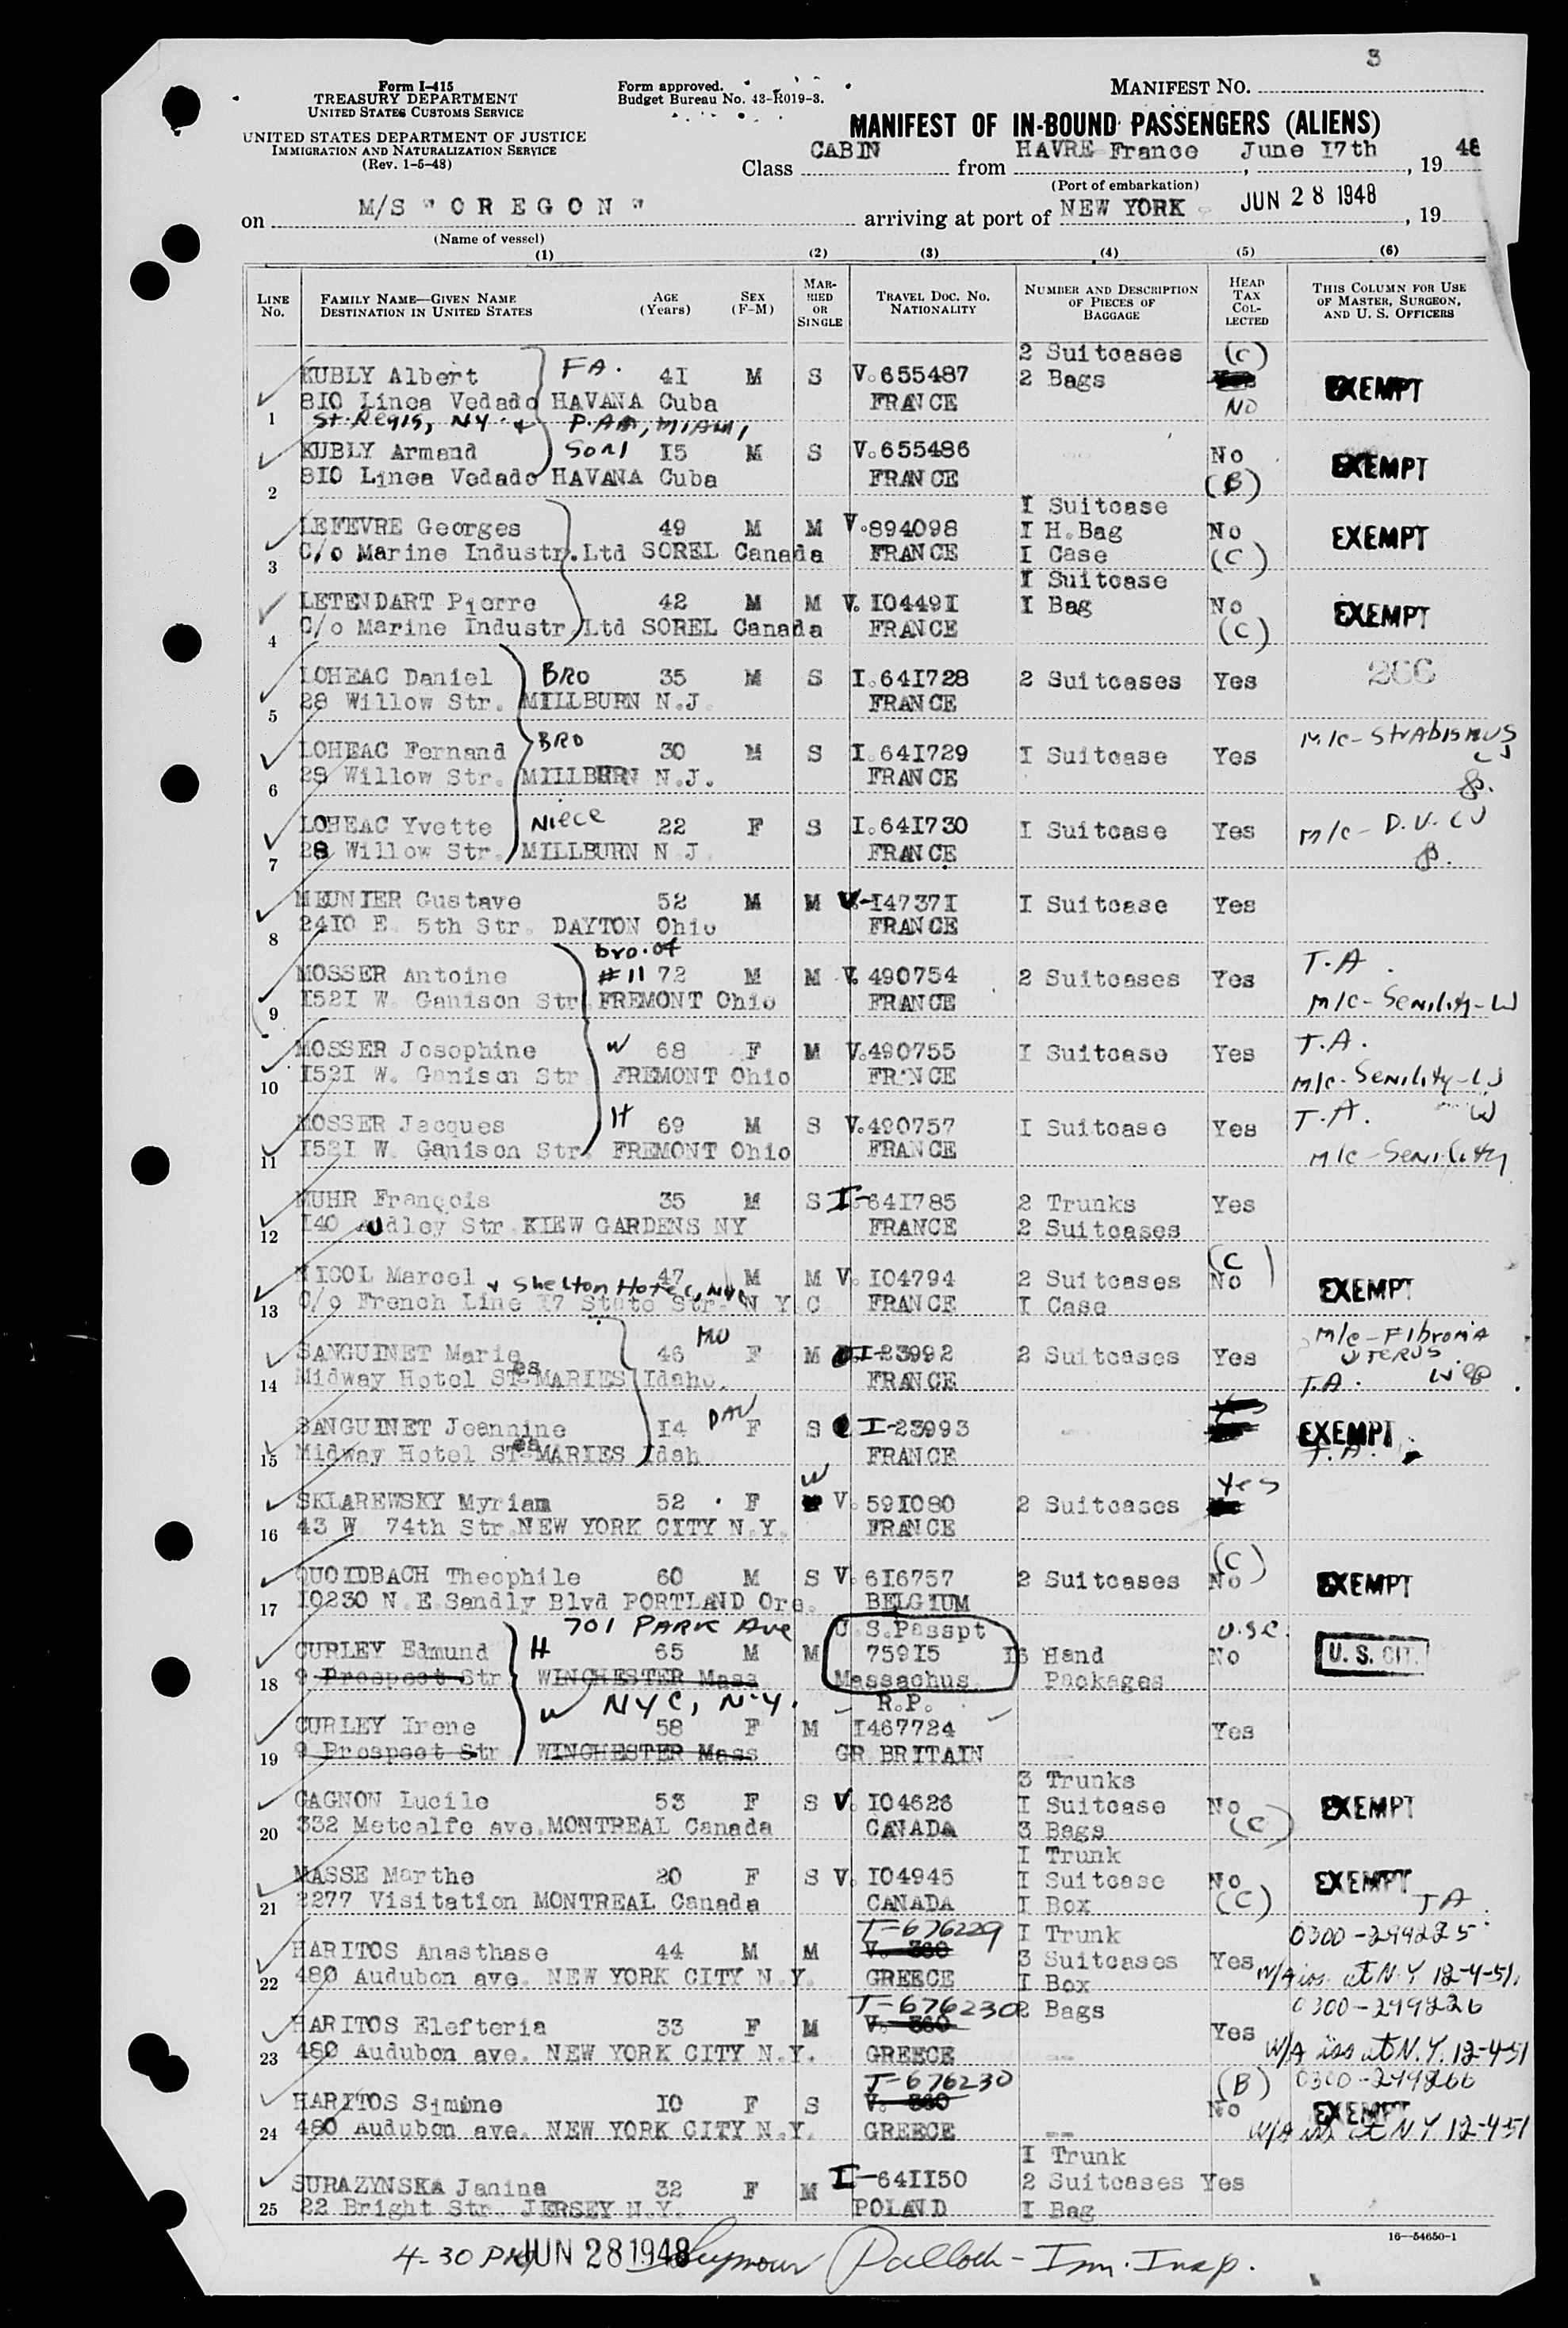 3
Form I-415
TREASURY DEPARTMENT
UNITED STATES CUSTOMS SERVICE
UNITED STATES DEPARTMENT OF JUSTICE
IMMIGRATION AND NATURALIZATION SERVICE
(Rev. 1-5-48)
Form approved.
Budget Bureau No. 43-R019-3.
MANIFEST NO.
MANIFEST OF IN-BOUND PASSENGERS (ALIENS)
Class CABIN from HAVRE France June 17th, 19 48
(Port of embarkation)
on M/S "OREGON" arriving at port of NEW YORK JUN 28 1948, 19
(Name of vessel)
(1) (2) (3) (4) (5) (6)
LINE No. FAMILY NAME—GIVEN NAME DESTINATION IN UNITED STATES AGE (Years) SEX (F-M) MARRIED OR SINGLE TRAVEL DOC. NO. NATIONALITY NUMBER AND DESCRIPTION OF PIECES OF BAGGAGE HEAD TAX COLLECTED THIS COLUMN FOR USE OF MASTER, SURGEON, AND U. S. OFFICERS
2 Suitcases (C)
KUBLY Albert FA. 41 M S V.655487 2 Bags EXEMPT
1 810 Linea Vedado HAVANA Cuba FRANCE NO
St. Regis, NY. + P.AM, MIAMI,
KUBLY Armand SON 15 M S V.655486 No EXEMPT
2 810 Linea Vedado HAVANA Cuba FRANCE (B)
I Suitcase
LEFEVRE Georges 49 M M V.894098 I H.Bag No EXEMPT
3 C/o Marine Industr.Ltd SOREL Canada FRANCE I Case (C)
I Suitcase
LETENDART Pierre 42 M M V. 104491 I Bag No EXEMPT
4 C/o Marine Industr.Ltd SOREL Canada FRANCE (C)
LOHEAC Daniel BRO 35 M S I.641728 2 Suitcases Yes 266
5 28 Willow Str. MILLBURN N.J. FRANCE
LOHEAC Fernand BRO 30 M S I.641729 I Suitcase Yes M/C-STRABISMUS
6 28 Willow Str. MILLBURN N.J. FRANCE
LOHEAC Yvette Niece 22 F S I.641730 I Suitcase Yes M/C- D.V. W
7 28 Willow Str. MILLBURN N.J. FRANCE
MEUNIER Gustave 52 M M V-147371 I Suitcase Yes
8 2410 E. 5th Str. DAYTON Ohio FRANCE
bro. of
MOSSER Antoine #11 72 M M V. 490754 2 Suitcases Yes T.A.
9 1521 W. Ganison Str FREMONT Ohio FRANCE M/C-Senility-W
MOSSER Josephine W 68 F M V.490755 I Suitcase Yes T.A.
10 1521 W. Ganison Str FREMONT Ohio FRANCE M/C-Senility-W
MOSSER Jacques H 69 M S V.490757 I Suitcase Yes T.A. W
11 1521 W. Ganison Str. FREMONT Ohio FRANCE M/C-Senility
MUHR François 35 M S I-641785 2 Trunks Yes
12 140 Audley Str.KIEW GARDENS NY FRANCE 2 Suitcases
(C)
NICOL Marcel + Shelton Hotel, NYC 47 M M V. 104794 2 Suitcases No EXEMPT
13 C/o French Line 17 State Str. N.Y.C. FRANCE I Case
SANGUINET Marie 46 MO F M I-23992 2 Suitcases Yes M/C-Fibroma Uterus
14 Midway Hotel STes MARIES Idaho. FRANCE T.A. W
SANGUINET Jeannine 14 DAU F S I-23993 EXEMPT
15 Midway Hotel STes MARIES Idah FRANCE T.A.
W Yes
SKLAREWSKY Myriam 52 F V. 591080 2 Suitcases
16 43 W. 74th Str.NEW YORK CITY N.Y. FRANCE
(C)
QUOIDBACH Theophile 60 M S V. 616757 2 Suitcases No EXEMPT
17 10230 N.E.Sandly Blvd PORTLAND Ore. BELGIUM
701 PARK Ave U.S.Passpt U.S.C.
CURLEY Edmund H 65 M M 75915 16 Hand No U. S. CIT.
18 9 Prospect Str WINCHESTER Mass Massachus. Packages
W NYC, N.Y. R.P.
CURLEY Irene 58 F M I467724 Yes
19 9 Prospect Str WINCHESTER Mass GR.BRITAIN
3 Trunks
GAGNON Lucile 53 F S V. 104626 I Suitcase No EXEMPT
20 332 Metcalfe ave.MONTREAL Canada CANADA 3 Bags (C)
I Trunk
MASSE Marthe 20 F S V. 104945 I Suitcase No EXEMPT
21 2277 Visitation MONTREAL Canada CANADA I Box (C) TA
T-676229 I Trunk 0300-299225
HARITOS Anasthase 44 M M V. 360 3 Suitcases Yes
22 480 Audubon ave. NEW YORK CITY N.Y. GREECE I Box W/A iss. at N.Y 12-4-51.
T-676230 2 Bags 0300-299226
HARITOS Elefteria 33 F M V. 360 Yes
23 480 Audubon ave. NEW YORK CITY N.Y. GREECE W/A iss at N.Y. 12-4-51
T-676230 (B) 0300-299266
HARITOS Simone 10 F S V. 360 No EXEMPT
24 480 Audubon ave. NEW YORK CITY N.Y. GREECE W/A iss at N.Y 12-4-51
I Trunk
SURAZYNSKA Janina 32 F M I-641150 2 Suitcases Yes
25 22 Bright Str. JERSEY N.Y. POLAND I Bag
16—54650-1
4-30 PM JUN 28 1948 Seymour Pallock - Imm. Insp.